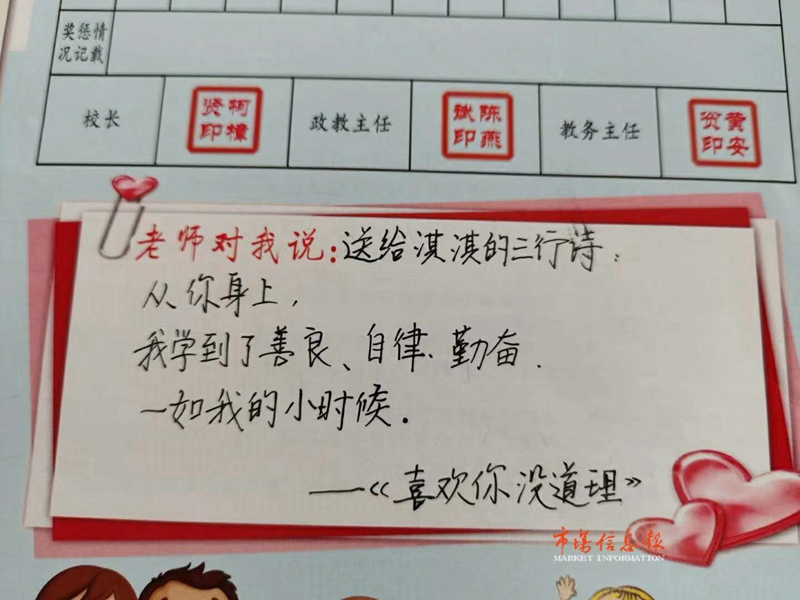 奖惩情
况记载
校长
柯樟
贤印
政教主任
陈燕
斌印
教务主任
黄安
贺印
老师对我说:送给淇淇的三行诗:
从你身上,
我学到了善良、自律、勤奋.
一如我的小时候.
——《喜欢你没道理》
市场信息报
MARKET INFORMATION